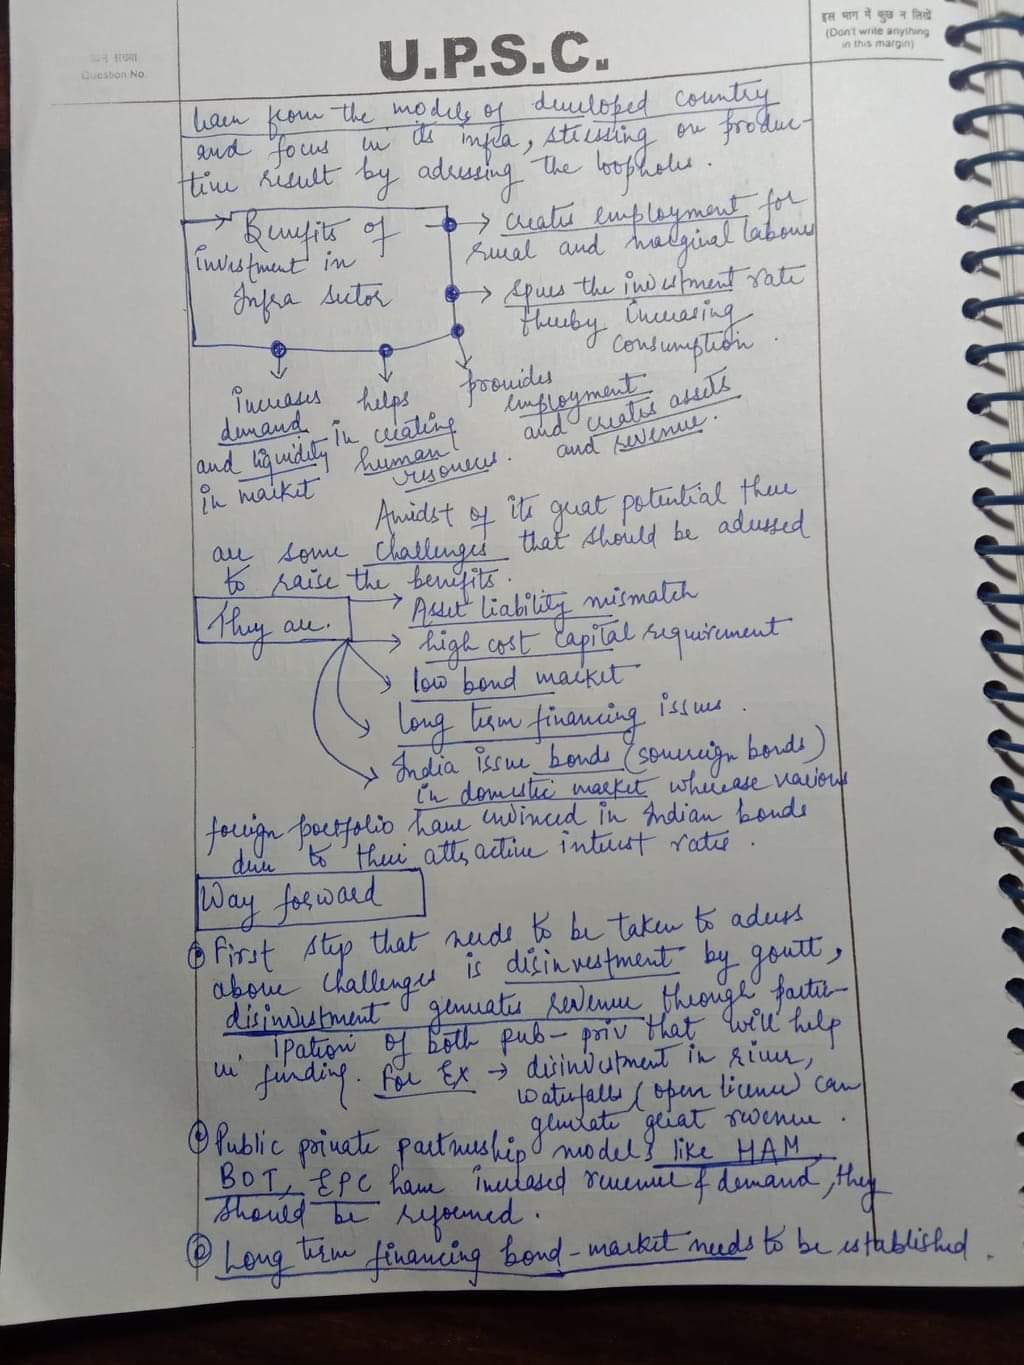 प्रश्न संख्या
Question No.
U.P.S.C.
इस भाग में कुछ न लिखें
(Don't write anything
in this margin)
learn from the models of developed country
and focus in its infra, stressing on produc-
tive result by adressing the loopholes.
Benefits of
investment in
Infra sector
creates employment for
rural and marginal labours
spurs the investment rate
thereby increasing
consumption.
increases
demand
and liquidity
in market
helps
in creating
human
resources.
provides
employment
and creates assets
and revenue.
Amidst of its great potential there
are some challenges that should be adressed
to raise the benefits.
They are.
Asset liability mismatch
high cost capital requirement
low bond market
long term financing issues.
India issue bonds (sovereign bonds)
in domestic market wherease various
foreign portfolio have invinced in Indian bonds
due to their attractive interest rates.
Way forward
First step that needs to be taken to adress
above challenges is disinvestment by govtt,
disinvestment generates revenue through partici-
ipation of both pub-priv that will help
in funding. For Ex → disinvestment in river,
waterfalls (open licence) can
generate great revenue.
Public private partnership models like HAM,
BOT, EPC have increased revenue & demand, they
should be reformed.
Long term financing bond-market needs to be established.